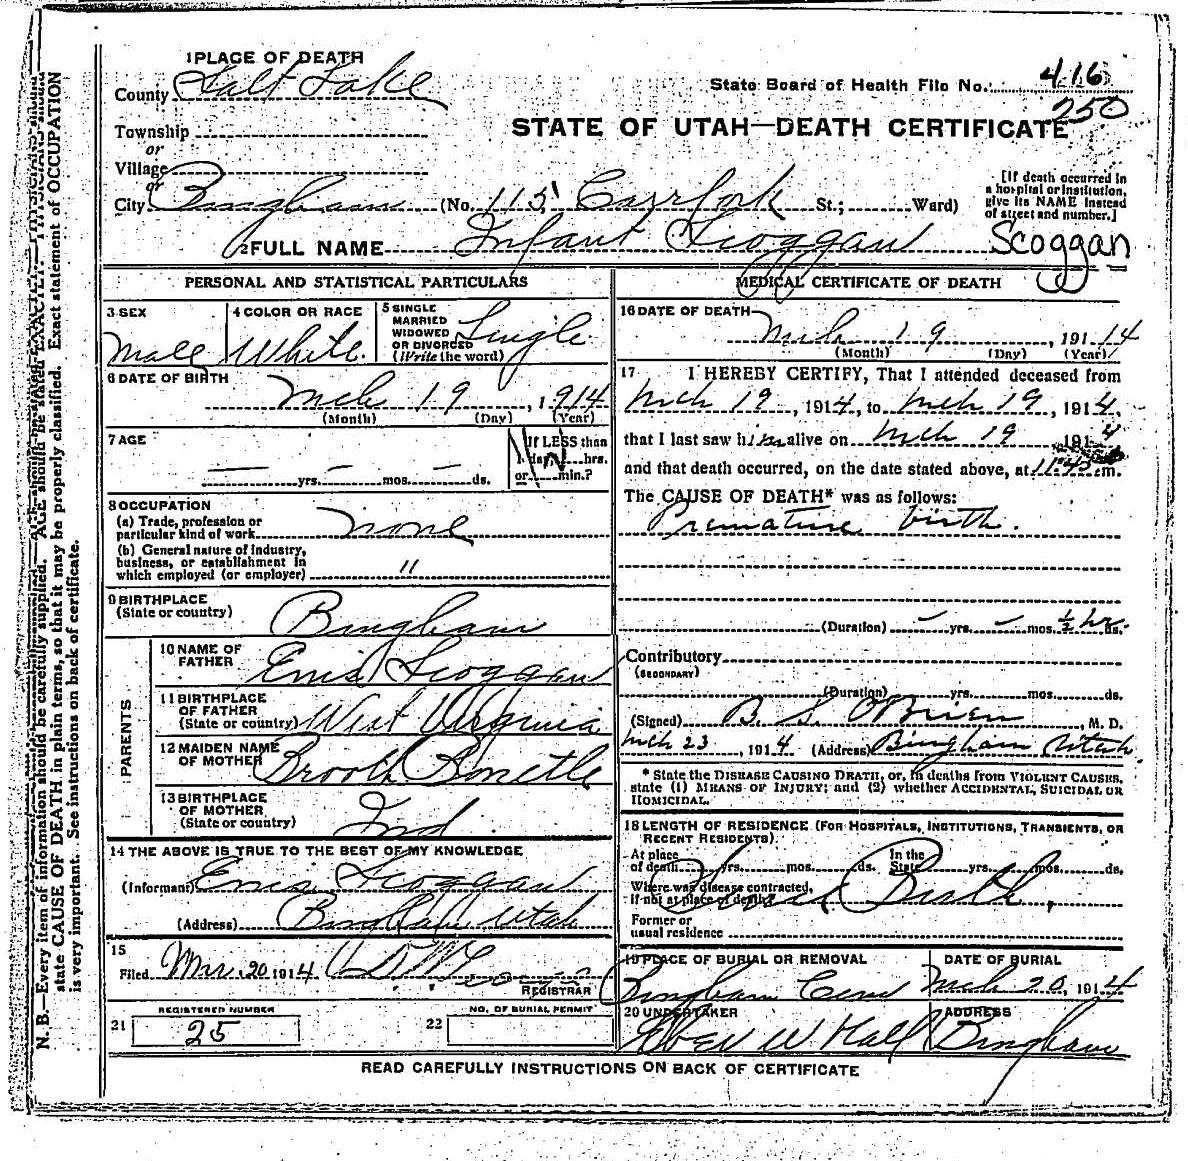 1 PLACE OF DEATH
County Salt Lake
State Board of Health File No. 416
250
Township
or
Village
or
STATE OF UTAH—DEATH CERTIFICATE
City Bingham (No. 115 Carrfork St.; Ward)
[If death occurred in
a hospital or institution,
give its NAME instead
of street and number.]
2 FULL NAME Infant Scoggan Scoggan
PERSONAL AND STATISTICAL PARTICULARS
3 SEX
Male
4 COLOR OR RACE
White
5 SINGLE
MARRIED
WIDOWED
OR DIVORCED
(Write the word)
Single
6 DATE OF BIRTH
Mch 19, 1914
(Month) (Day) (Year)
7 AGE
— yrs. — mos. — ds.
If LESS than
1 day hrs.
or min.?
8 OCCUPATION
(a) Trade, profession or
particular kind of work none
(b) General nature of industry,
business, or establishment in
which employed (or employer) "
9 BIRTHPLACE
(State or country)
Bingham
PARENTS
10 NAME OF
FATHER
Scoggan
11 BIRTHPLACE
OF FATHER
(State or country) West Virginia
12 MAIDEN NAME
OF MOTHER
13 BIRTHPLACE
OF MOTHER
(State or country)
Ind
14 THE ABOVE IS TRUE TO THE BEST OF MY KNOWLEDGE
(Informant) Scoggan
(Address) Bingham Utah
15
Filed Mar. 20 1914
REGISTRAR
REGISTERED NUMBER
21 25
NO. OF BURIAL PERMIT
22
MEDICAL CERTIFICATE OF DEATH
16 DATE OF DEATH
Mch 19, 191 14
(Month) (Day) (Year)
17 I HEREBY CERTIFY, That I attended deceased from
Mch 19, 1914, to Mch 19, 1914,
that I last saw him alive on Mch 19 1914
and that death occurred, on the date stated above, at 11:45 m.
The CAUSE OF DEATH* was as follows:
Premature birth.
(Duration) — yrs. — mos. ½ hr. ds.
Contributory
(SECONDARY)
(Duration) yrs. mos. ds.
(Signed) B. S. O'Brien, M. D.
Mch 23, 1914 (Address) Bingham Utah
* State the DISEASE CAUSING DEATH, or, in deaths from VIOLENT CAUSES,
state (1) MEANS OF INJURY; and (2) whether ACCIDENTAL, SUICIDAL OR
HOMICIDAL.
18 LENGTH OF RESIDENCE (FOR HOSPITALS, INSTITUTIONS, TRANSIENTS, OR
RECENT RESIDENTS).
At place
of death yrs. mos. ds.
In the
State yrs. mos. ds.
Where was disease contracted,
if not at place of death?
Former or
usual residence
19 PLACE OF BURIAL OR REMOVAL
Bingham Cem
DATE OF BURIAL
Mch 20, 1914
20 UNDERTAKER
Eber W Hall
ADDRESS
Bingham
READ CAREFULLY INSTRUCTIONS ON BACK OF CERTIFICATE
N. B.—Every item of information should be carefully supplied. AGE should be stated EXACTLY. PHYSICIANS should
state CAUSE OF DEATH in plain terms, so that it may be properly classified. Exact statement of OCCUPATION
is very important. See instructions on back of certificate.